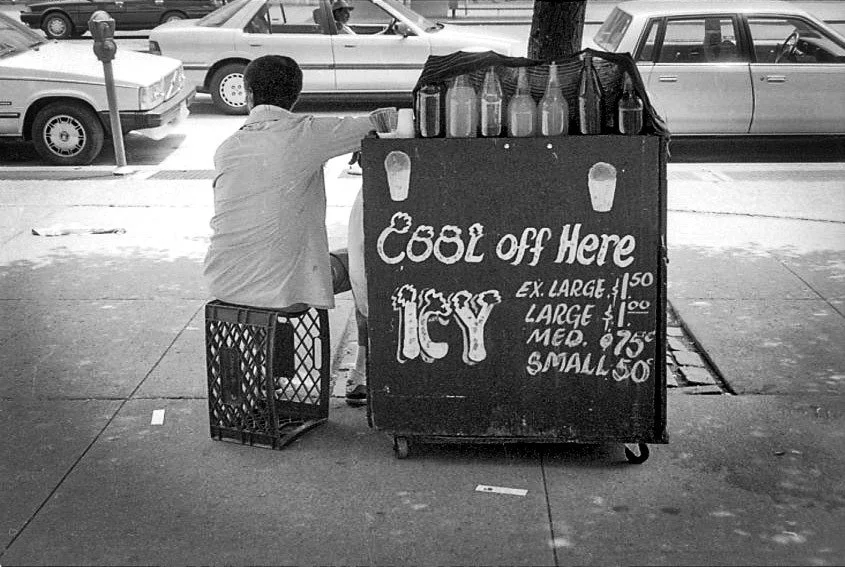 Cool off Here
ICY
EX. LARGE $1.50
LARGE $1.00
MED. 75¢
SMALL 50¢